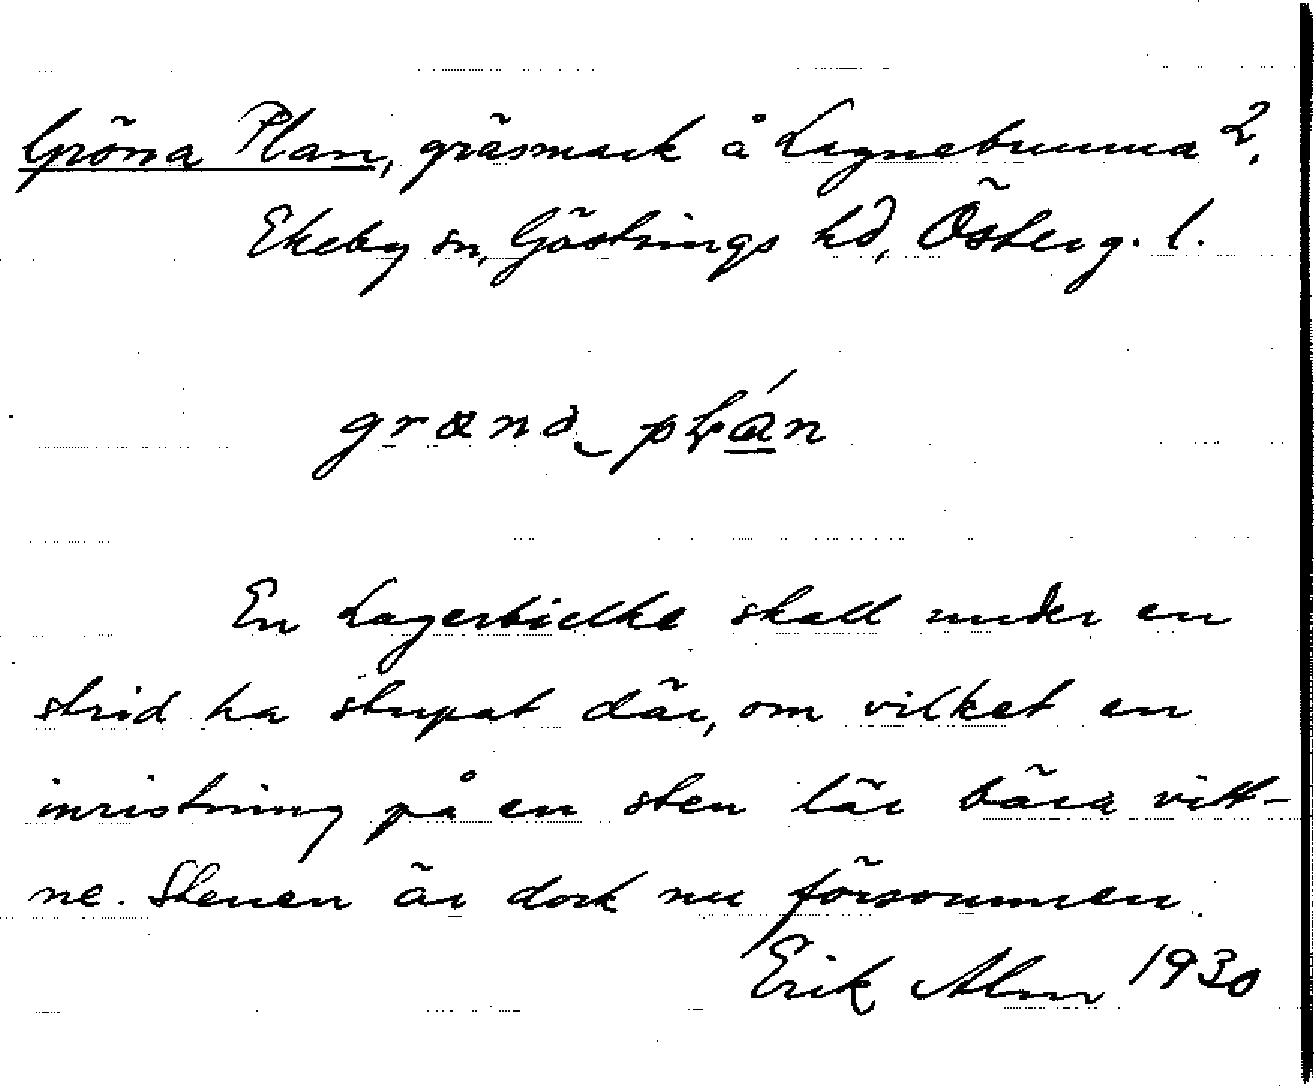 Gröna Plan, gräsmark å Lagnebrunna 2,
Ekeby sn, Göstrings hd, Österg. l.
En Lagerbielke skall under en
strid ha stupat där, om vilket en
inristning på en sten lär bära vitt-
ne. Stenen är dock nu försvunnen.
Erik Alm 1930